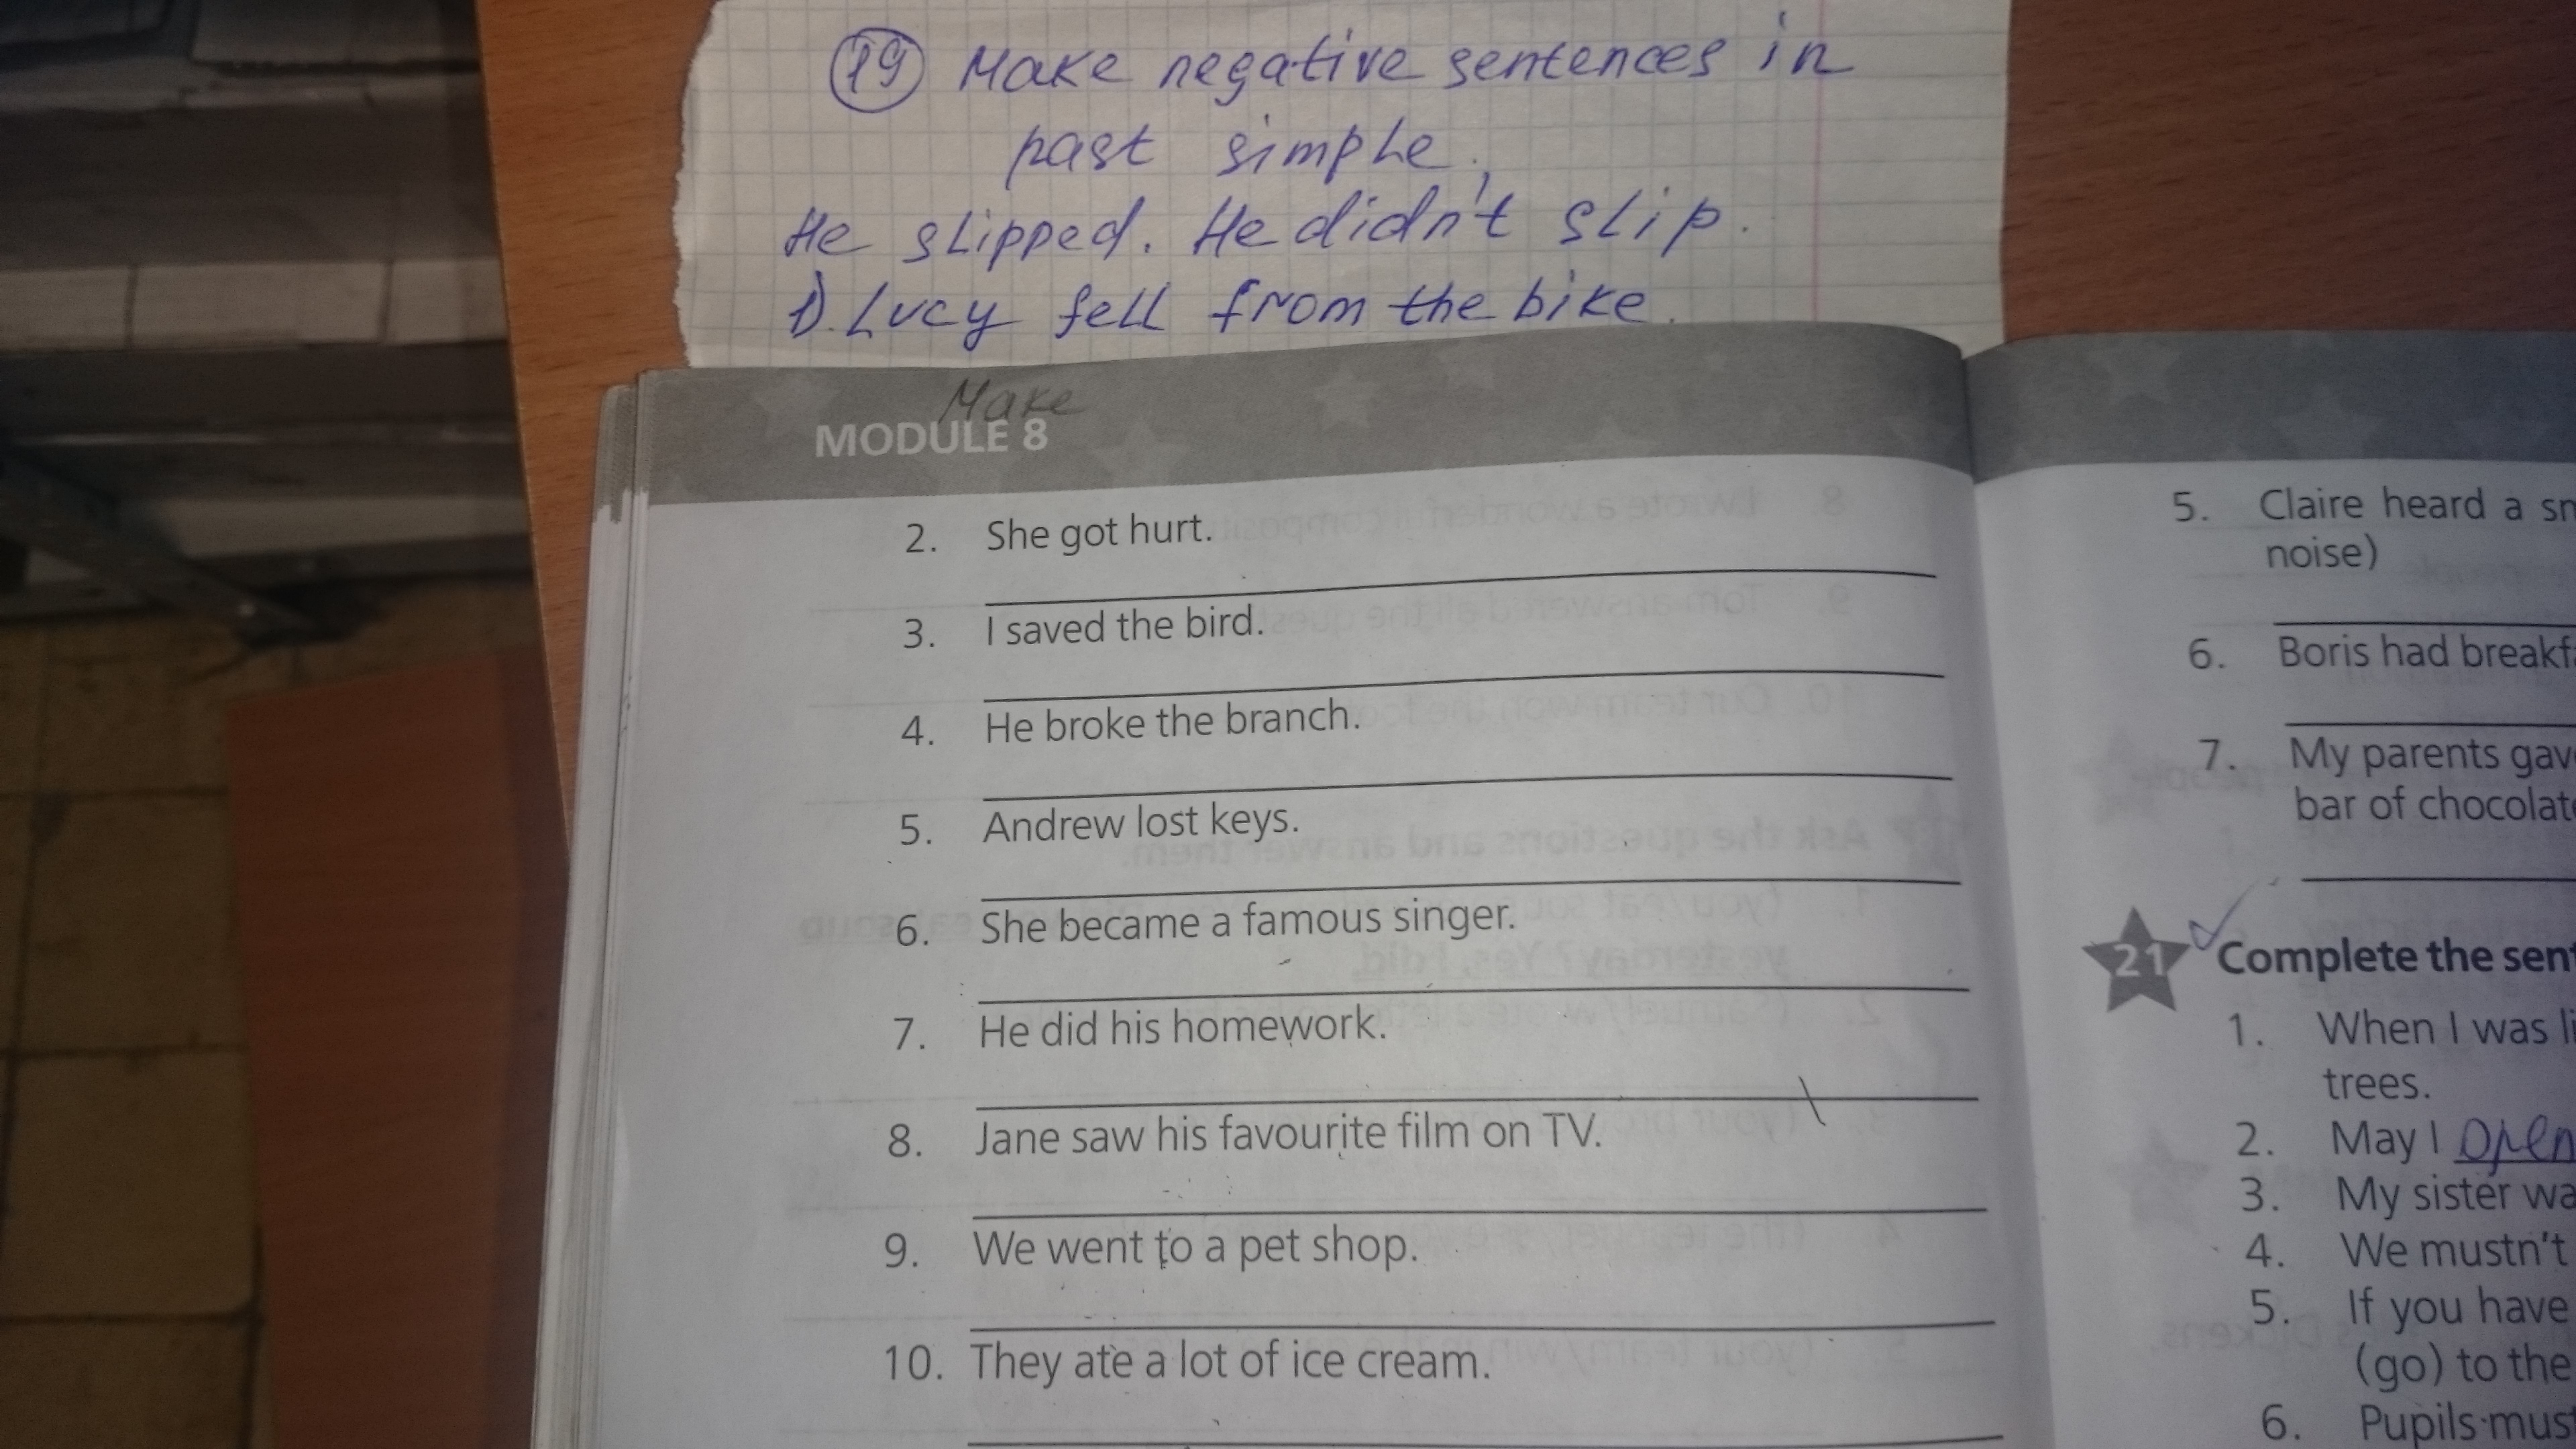 19 Make negative sentences in
past simple.
He slipped. He didn't slip.
1). Lucy fell from the bike.
Make
MODULE 8
2. She got hurt.
3. I saved the bird.
4. He broke the branch.
5. Andrew lost keys.
6. She became a famous singer.
7. He did his homework.
8. Jane saw his favourite film on TV.
9. We went to a pet shop.
10. They ate a lot of ice cream.
5. Claire heard a
noise)
6. Boris had
7. My parents
bar of
21 Complete the
1. When I was
trees.
2. May I open
3. My sister
4. We mustn't
5. If you have
(go) to the
6. Pupils